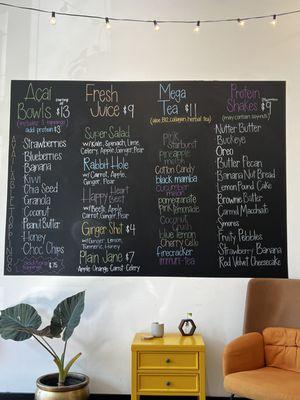 Açaí
Bowls starting $13
(includes 3 toppings)
add protein $3
AVAILABLE TOPPINGS
Strawberries
Blueberries
Banana
Kiwi
Chia Seed
Granola
Coconut
Peanut Butter
Honey
Choc Chips
additional
toppings $.75
Fresh
Juice $9
Super Salad
w/Kale, Spinach, Lemon,
Celery, Apple, Carrot, Ginger
Rabbit Hole
w/ Carrot, Apple,
Ginger, Pear
Happy Heart
w/Beets, Apple,
Carrot, Ginger, Pear
Ginger Shot $4
w/Ginger, Lemon,
Turmeric, Honey
Plain Jane $7
Apple Orange Carrot Celery
Mega
Tea $11
(aloe, B12, collagen, herbal tea)
Pink
Starburst
Pineapple
Cotton Candy
black mamba
Cucumber
melon
pomegranate
Pink Lemonade
Coconut
Crush
blue Lemon
Cherry Cello
firecracker
immuni-Tea
Protein
Shakes starting $9
(may contain tree nuts)
Nutter Butter
Buckeye
Oreo
Butter Pecan
Banana Nut Bread
Lemon Pound Cake
Brownie Butter
Caramel Macchiato
S'mores
Fruity Pebbles
Strawberry Banana
Red Velvet Cheesecake